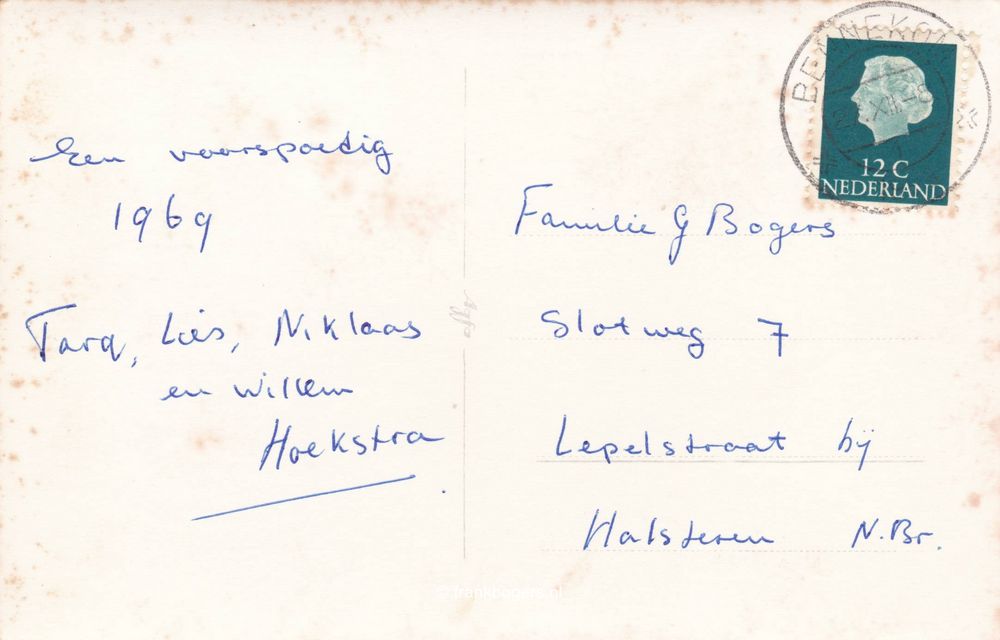 Een voorspoedig
1969
Tara, Lies, Niklaas
en Willem
Hoekstra
Familie G Bogers
Slotweg 7
Lepelstraat bij
Halsteren N.Br.
BENNEKOM
12 C
NEDERLAND
© frankbogers.nl